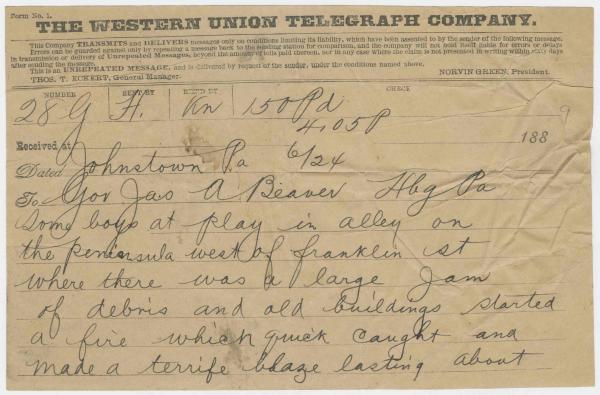 Form No. 1.
THE WESTERN UNION TELEGRAPH COMPANY.
This Company TRANSMITS and DELIVERS messages only on conditions limiting its liability, which have been assented to by the sender of the following message.
Errors can be guarded against only by repeating a message back to the sending station for comparison, and the company will not hold itself liable for errors or delays
in transmission or delivery of Unrepeated Messages, beyond the amount of tolls paid thereon, nor in any case where the claim is not presented in writing within days
after sending the message.
This is an UNREPEATED MESSAGE, and is delivered by request of the sender, under the conditions named above.
THOS. T. ECKERT, General Manager. NORVIN GREEN, President.
NUMBER SENT BY REC'D BY CHECK
28 G H. Kn 150 Pd
4.05P
Received at 188 9
Dated Johnstown Pa 6/24
To Gov Jas A Beaver Hbg Pa
Some boys at play in alley on
the peninsula west of franklin st
where there was a large Jam
of debris and old buildings started
a fire which quick caught and
made a terrife blaze lasting about